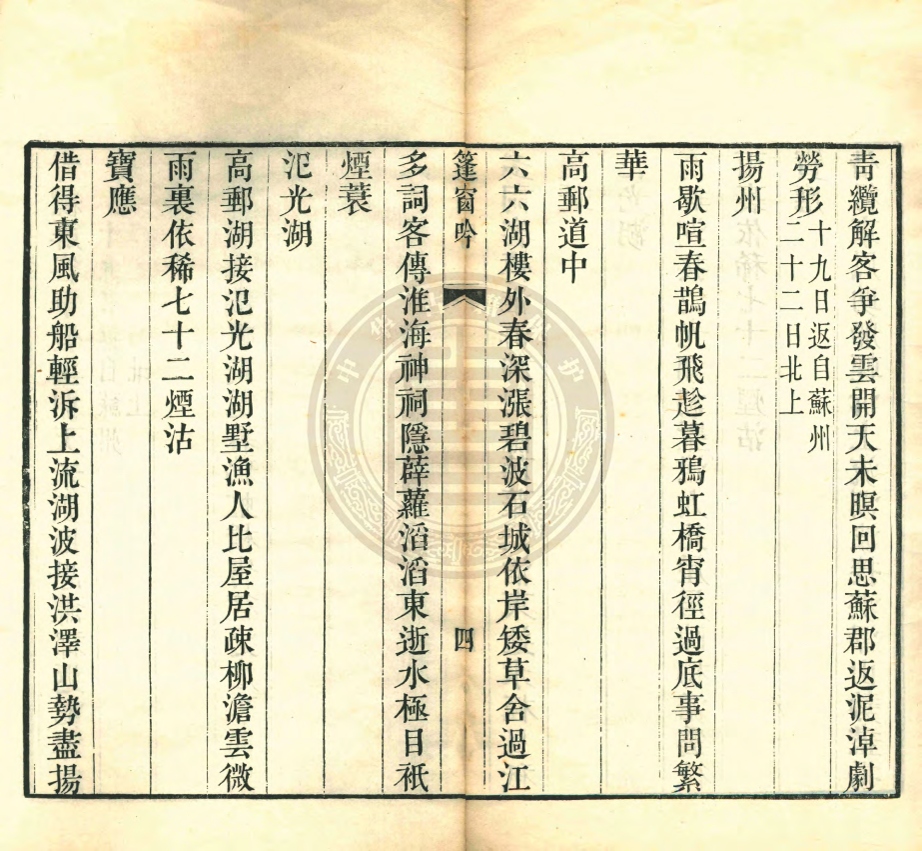 靑纜解客爭發雲開天未暝回思蘇郡返泥淖劇
勞形
十九日返自蘇州
二十二日北上
揚州
雨歇喧春鵲帆飛趁暮鴉虹橋宵徑過底事問繁
華
高郵道中
六六湖樓外春深漲碧波石城依岸矮草舍過江
篷窗吟
四
多詞客傳淮海神祠隱薜蘿滔滔東逝水極目衹
煙蓑
氾光湖
高郵湖接氾光湖湖墅漁人比屋居疎柳澹雲微
雨裏依稀七十二煙沽
寶應
借得東風助船輕泝上流湖波接洪澤山勢盡揚